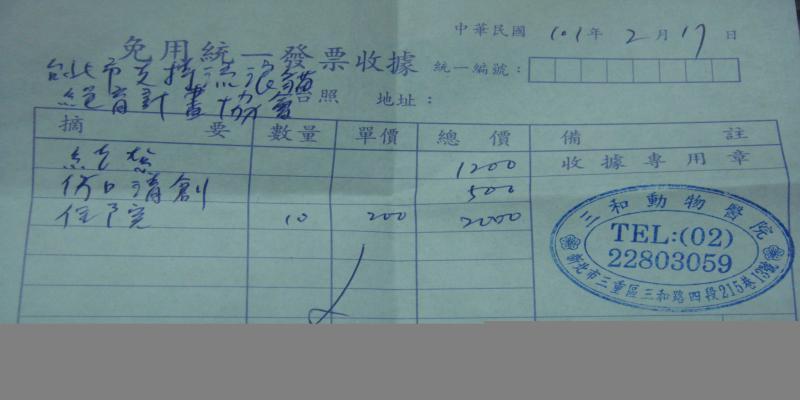 中華民國 101年 2月17日
免用統一發票收據
統一編號：
台北市支持流浪貓
絕育計畫協會
台照 地址：
摘要 數量 單價 總價 備註
1200 收據專用章
傷口清創 500
住院 10 200 2000
三和動物醫院
TEL:(02)
22803059
新北市三重區三和路四段215巷13號